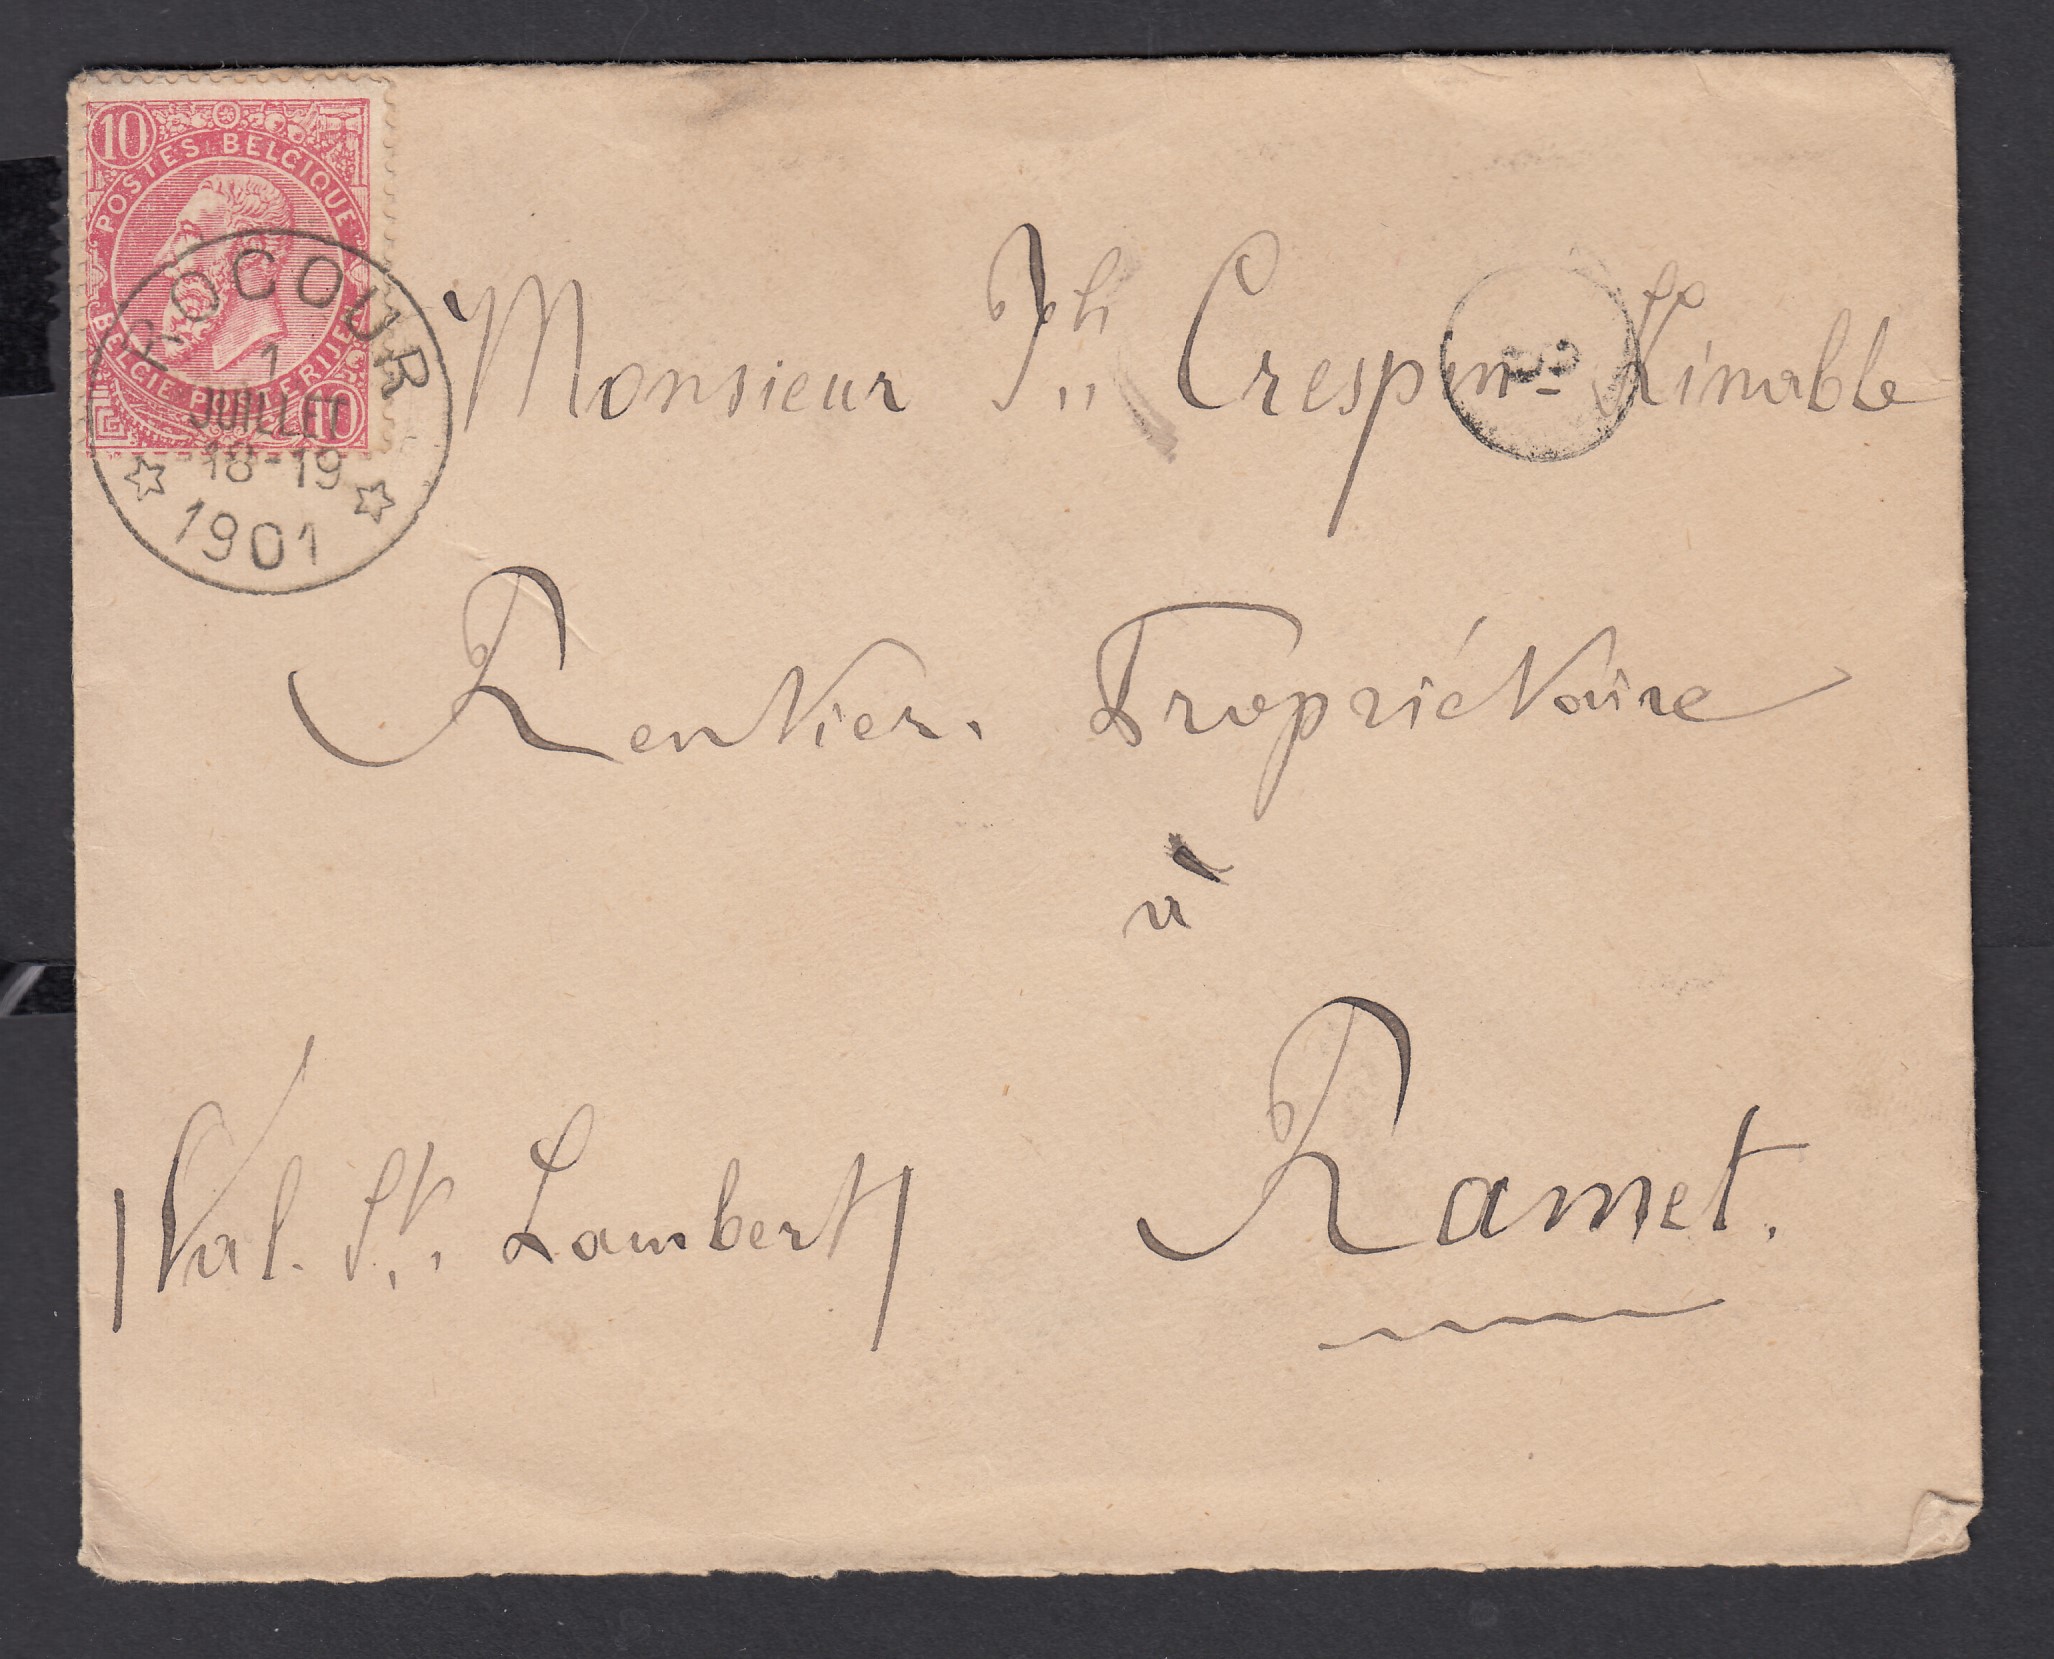 10
POSTES BELGIQUE
BELGIE POSTERIJEN
10
ROCOUR
1
JUILLET
18-19
1901
Monsieur Jh Crespin-Kinable
3
Rentier. Propriétaire
à
Ramet.
(Val. St. Lambert)